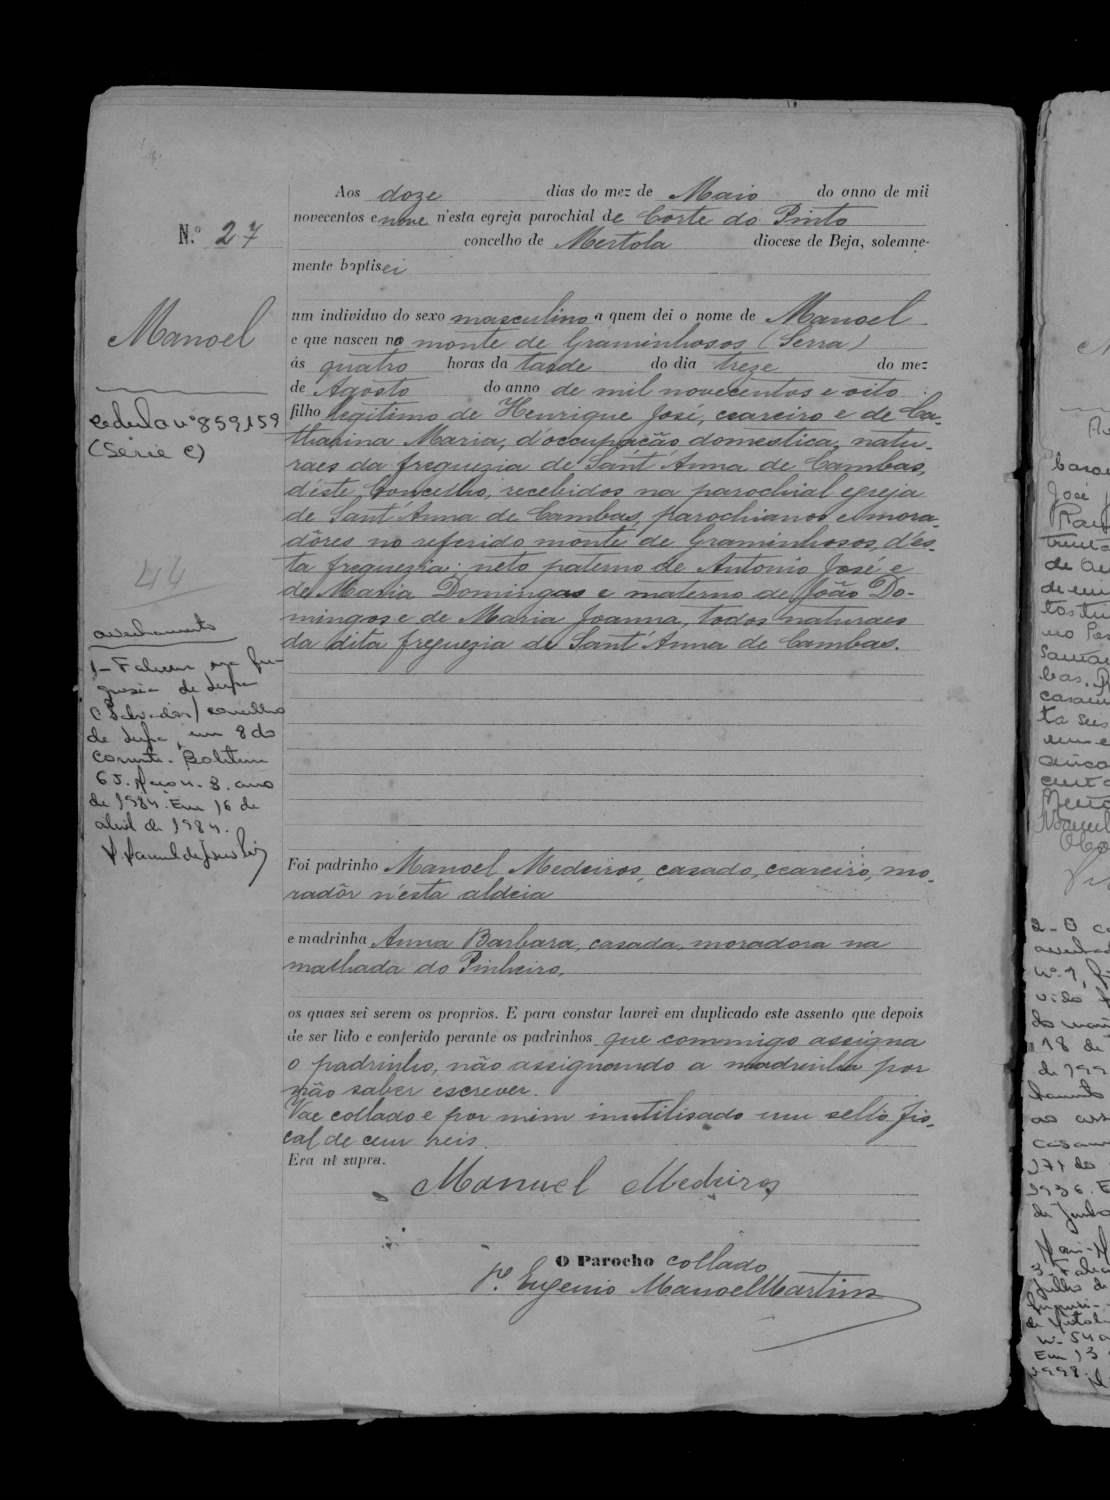 Aos doze dias do mez de Maio do anno de mil
novecentos e nove n'esta egreja parochial de Corte do Pinto
concelho de Mertola diocese de Beja, solemne-
mente baptisei
N.º 27
Manoel
um individuo do sexo masculino a quem dei o nome de Manoel
e que nasceu no monte de Graminhosos (Serra)
ás quatro horas da tarde do dia treze do mez
de Agosto do anno de mil novecentos e oito
filho legitimo de Henrique José, ceareiro e de Ca-
tharina Maria, d'occupação domestica, natu-
raes da freguezia de Sant'Anna de Cambas,
d'éste Concelho, recebidos na parochial egreja
de Sant'Anna de Cambas, parochianos e mora-
dôres no referido monte de Graminhosos, d'es-
ta freguezia: neto paterno de Antonio José e
de Maria Domingas e materno de João Do-
mingos e de Maria Joanna, todos naturaes
da dita freguezia de Sant'Anna de Cambas.
Cedula nº 859159
(Série C)
44
averbamento
1 - Faleceu na fre-
guesia de Serpa
(Salvador) concelho
de Serpa, em 8 do
corrente. Boletim
65. Maço n. 3. ano
de 1984. Em 16 de
abril de 1984.
Foi padrinho Manoel Medeiros, casado, ceareiro, mo-
radôr n'esta aldeia
e madrinha Anna Barbara, casada, moradora na
malhada do Pinheiro,
os quaes sei serem os proprios. E para constar lavrei em duplicado este assento que depois
de ser lido e conferido perante os padrinhos que commigo assigna
o padrinho, não assignando a madrinha por
não saber escrever.
Vae collado e por mim inutilisado um sello fis-
cal de cem reis.
Era ut supra.
Manuel Medeiros
O Parocho collado
P.e Eugenio Manoel Martins